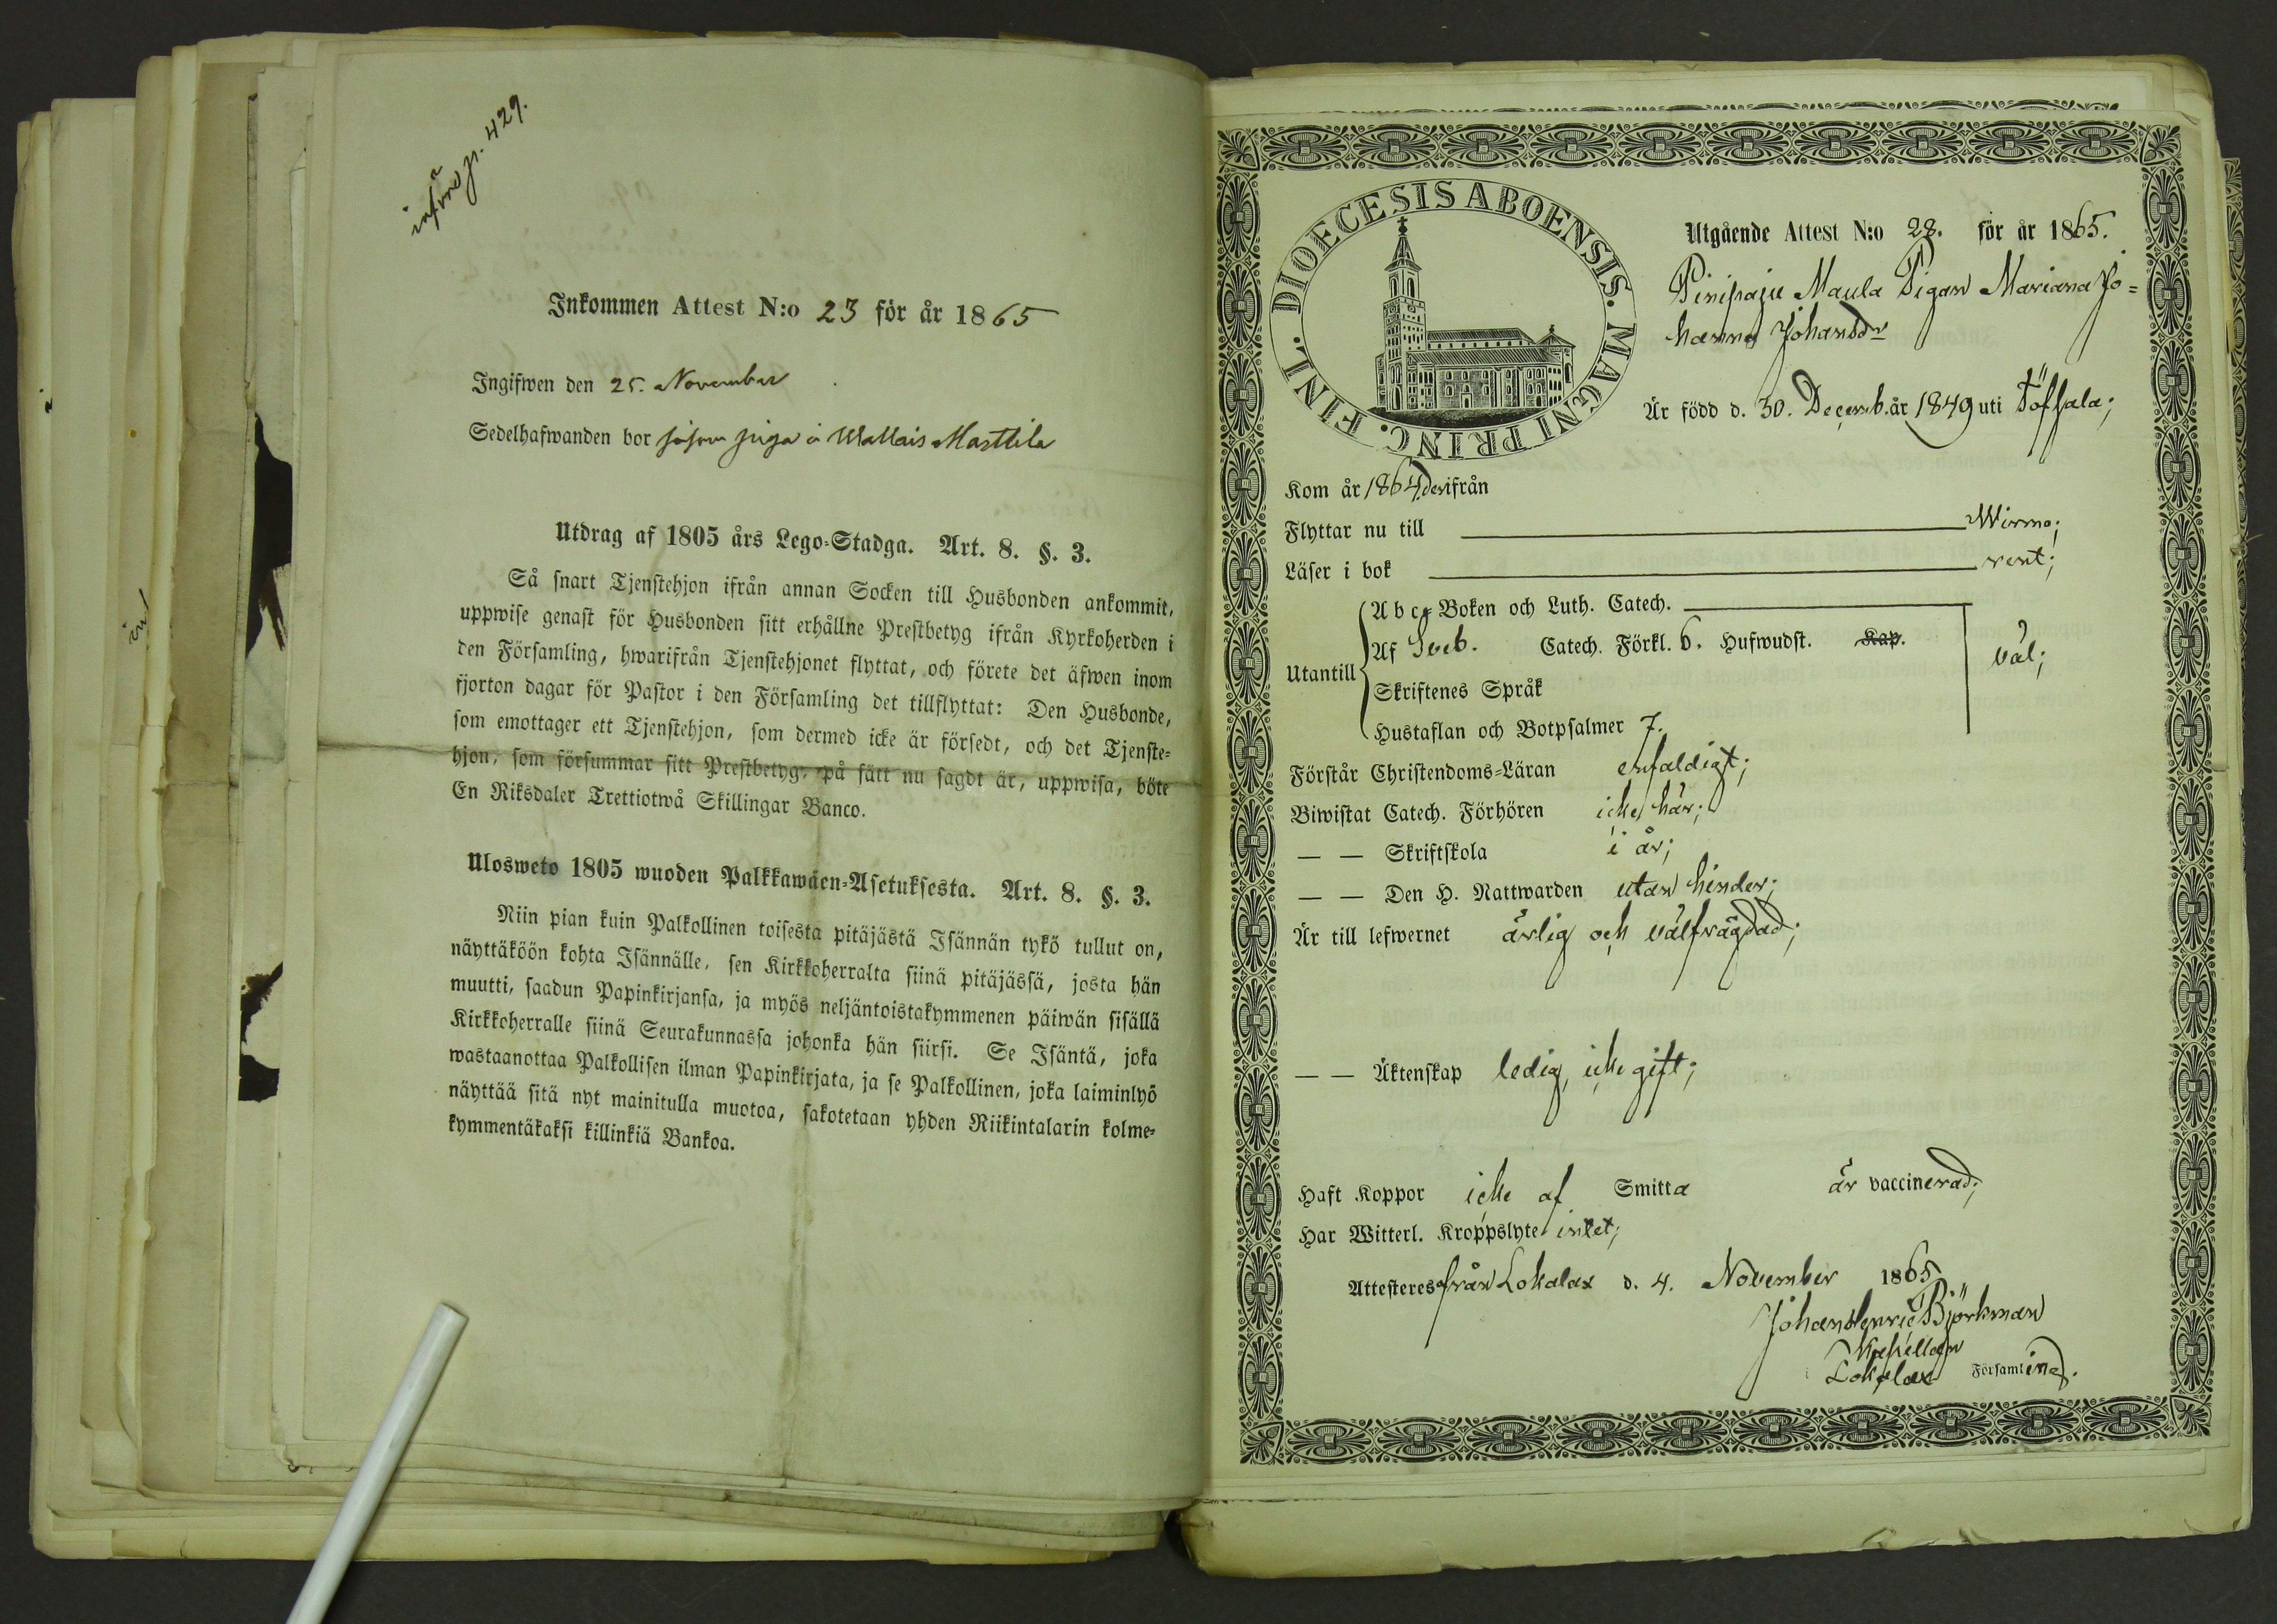 införd p. 429.
Inkommen Attest N:o 23 för år 1865
Ingifwen den 25. November
Sedelhafwanden bor såsom piga å Wallais Marttila
Utdrag af 1805 års Lego-Stadga. Art. 8. §. 3.
Så snart Tjenstehjon ifrån annan Socken till Husbonden ankommit,
uppwise genast för Husbonden sitt erhållne Prestbetyg ifrån Kyrkoherden i
den Församling, hwarifrån Tjenstehjonet flyttat, och förete det äfwen inom
fjorton dagar för Pastor i den Församling det tillflyttat: Den Husbonde,
som emottager ett Tjenstehjon, som dermed icke är försedt, och det Tjenste-
hjon, som försummar sitt Prestbetyg, på sätt nu sagdt är, uppwisa, böte
En Riksdaler Trettiotwå Skillingar Banco.
Ulosweto 1805 wuoden Palkkawäen-Asetuksesta. Art. 8. §. 3.
Niin pian kuin Palkollinen toisesta pitäjästä Isännän tykö tullut on,
näyttäköön kohta Isännälle, sen Kirkkoherralta siinä pitäjässä, josta hän
muutti, saadun Papinkirjansa, ja myös neljäntoistakymmenen päiwän sisällä
Kirkkoherralle siinä Seurakunnassa johonka hän siirsi. Se Isäntä, joka
wastaanottaa Palkollisen ilman Papinkirjata, ja se Palkollinen, joka laiminlyö
näyttää sitä nyt mainitulla muotoa, sakotetaan yhden Riikintalarin kolme-
kymmentäkaksi killinkiä Bankoa.
DIOECESIS ABOENSIS. MAGNI PRINC. FINL.
Utgående Attest N:o 28. för år 1865.
Pinipaju Maula Pigan Mariana Jo=
hanna Johansdr
Är född d. 30. Decemb. år 1849 uti Töffsala;
Kom år 1864 derifrån
Flyttar nu till Wirmo;
Läser i bok rent;
Utantill
A b c-Boken och Luth. Catech.
Af Sveb. Catech. Förkl. 6. Hufwudst. Kap.
väl;
Skriftenes Språk
Hustaflan och Botpsalmer 7.
Förstår Christendoms-Läran enfaldigt;
Biwistat Catech. Förhören icke här;
— — Skriftskola i år;
— — Den H. Nattwarden utan hinder;
Är till lefwernet ärlig och välfrägdad;
— — Äktenskap ledig, icke gift;
Haft Koppor icke af Smitta är vaccinerad;
Har Witterl. Kroppslyte intet;
Attesteres från Lokalax d. 4. November 1865
Johan Henric Björkman
Kapellan
i Lokalax Församling.